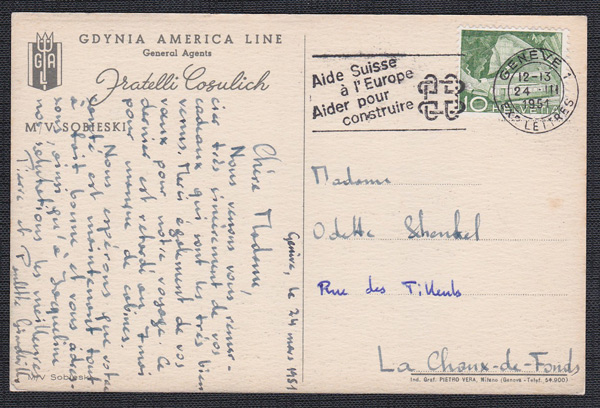 GAL
GDYNIA AMERICA LINE
General Agents
Fratelli Cosulich
M/V SOBIESKI
Genève, le 24 mars 1951
Chère Madame,
Nous venons vous remer-
cier très sincèrement de vos
cadeaux qui sont les très bien
venus. Merci également de vos
vœux pour notre voyage. Ce
dernier est retardé en 7 mai
pour manque de cabines.
Nous espérons que votre
santé est maintenant tout
à fait bonne et vous adres-
sons, ainsi qu'à Jaqueline
nos salutations les meilleures
Pierre et
M/V Sobieski
Aide Suisse
à l'Europe
Aider pour
construire
GENÈVE 1
12-13
24 III
1951
EXP. LETTRES
10
Madame
Odette Schenkel
Rue des Tilleuls
La Chaux-de-Fonds
Ind. Graf. PIETRO VERA, Milano (Genova - Tel. 54.900)